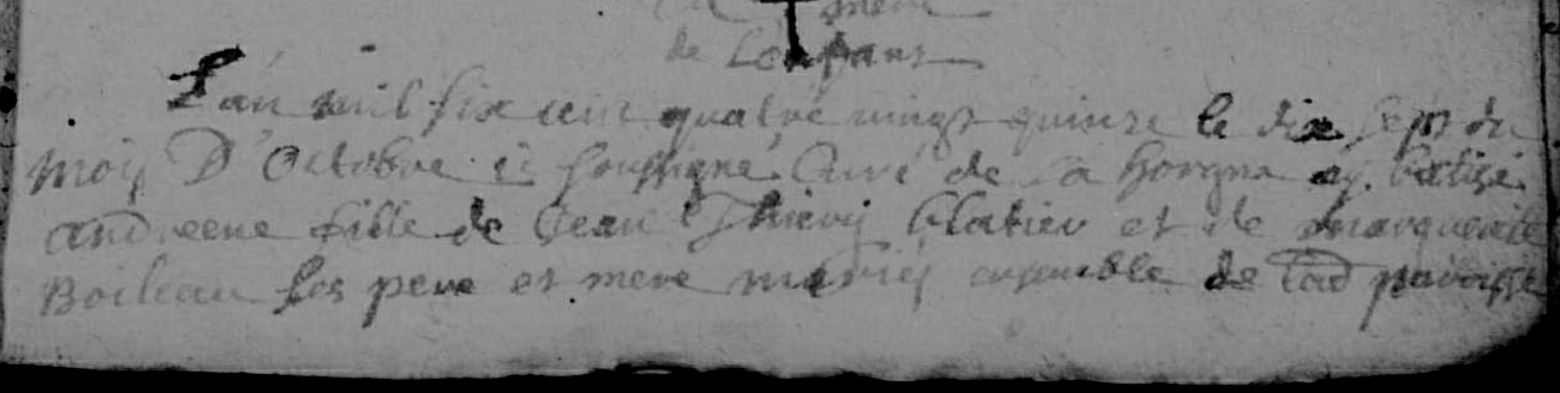 mere
de Lenfant
L'an mil six cent quatre vingt quinze le dix sept du
mois D'Octobre ie soussigné Curé de La horgne ay batizé
andreene fille de Jean Thiery blatier et de marguerite
Boileau ses pere et mere mariés ensemble de lad paroisse